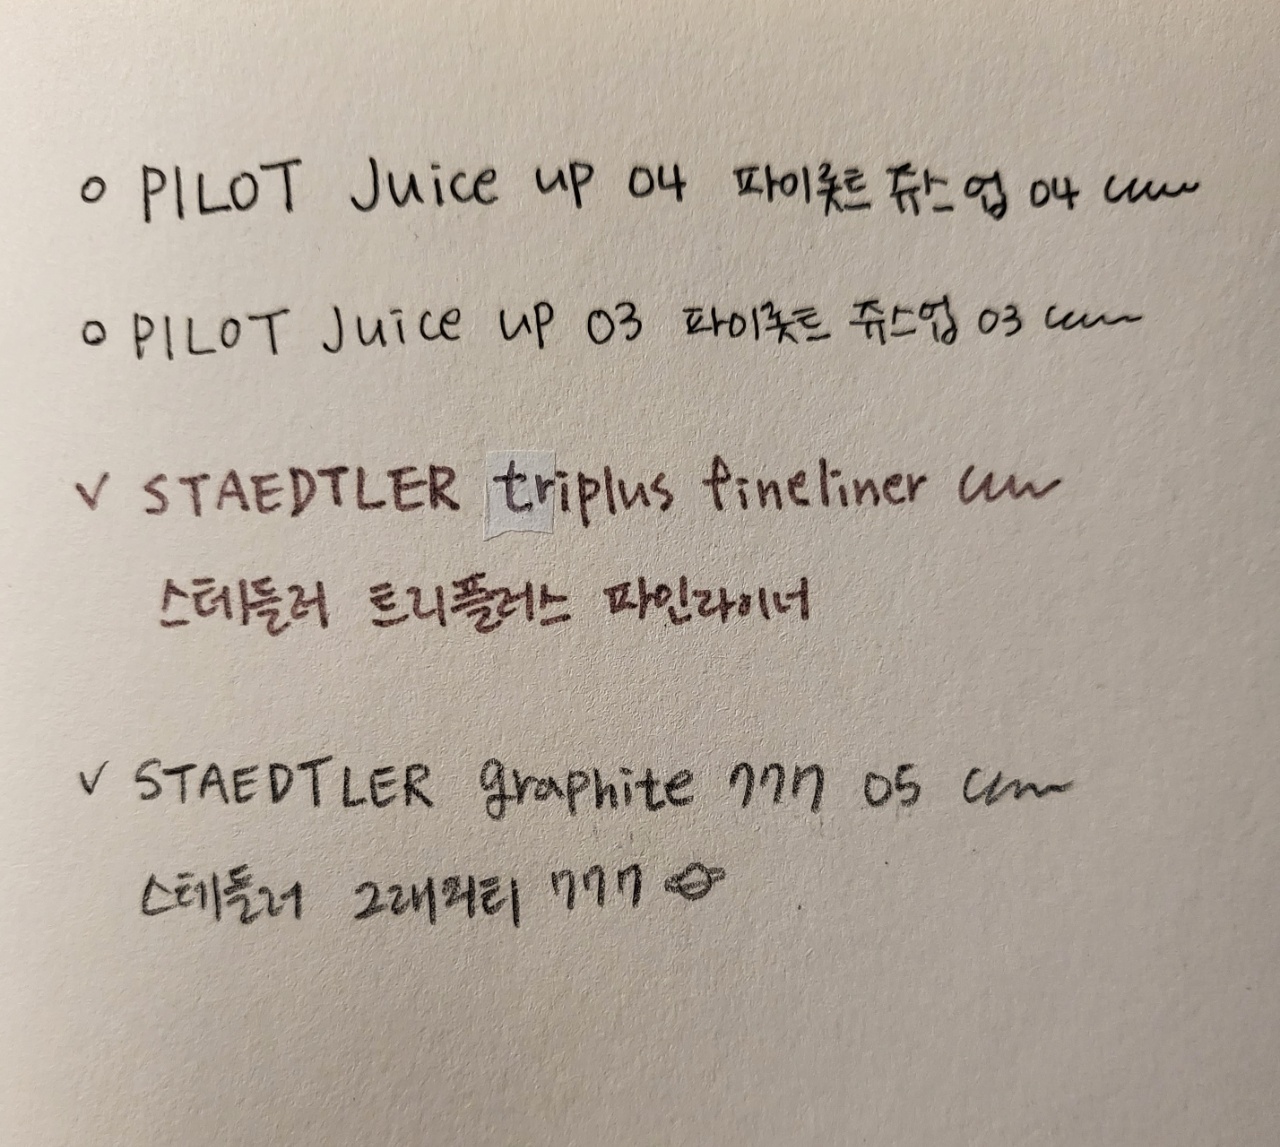 PILOT Juice up 04 파이롯트 쥬스업 04
PILOT Juice up 03 파이롯트 쥬스업 03
STAEDTLER triplus fineliner
스테들러 트리플러스 파인라이너
STAEDTLER graphite 777 05
스테들러 그래피티 777